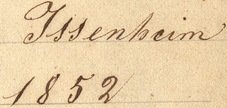 Issenheim
1852